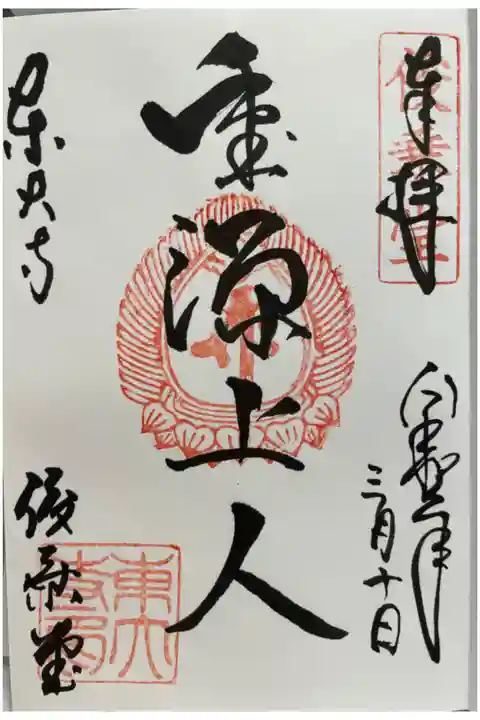 奉拝
俊乗堂
令和
年
三月十日
重源上人
東大寺
俊乗堂
東大